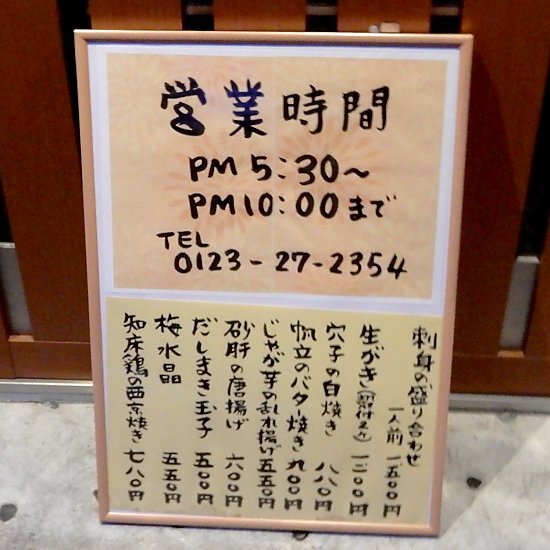 営業時間
PM 5:30～
PM10:00まで
TEL
0123-27-2354
刺身の盛り合わせ
一人前 一五〇〇円
生がき(殻付2ケ) 一二〇〇円
穴子の白焼き 八八〇円
帆立のバター焼き 九〇〇円
じゃが芋の乱れ揚げ 五五〇円
砂肝の唐揚げ 六〇〇円
だしまき玉子 五〇〇円
梅水晶 五五〇円
知床鶏の西京焼き 七八〇円